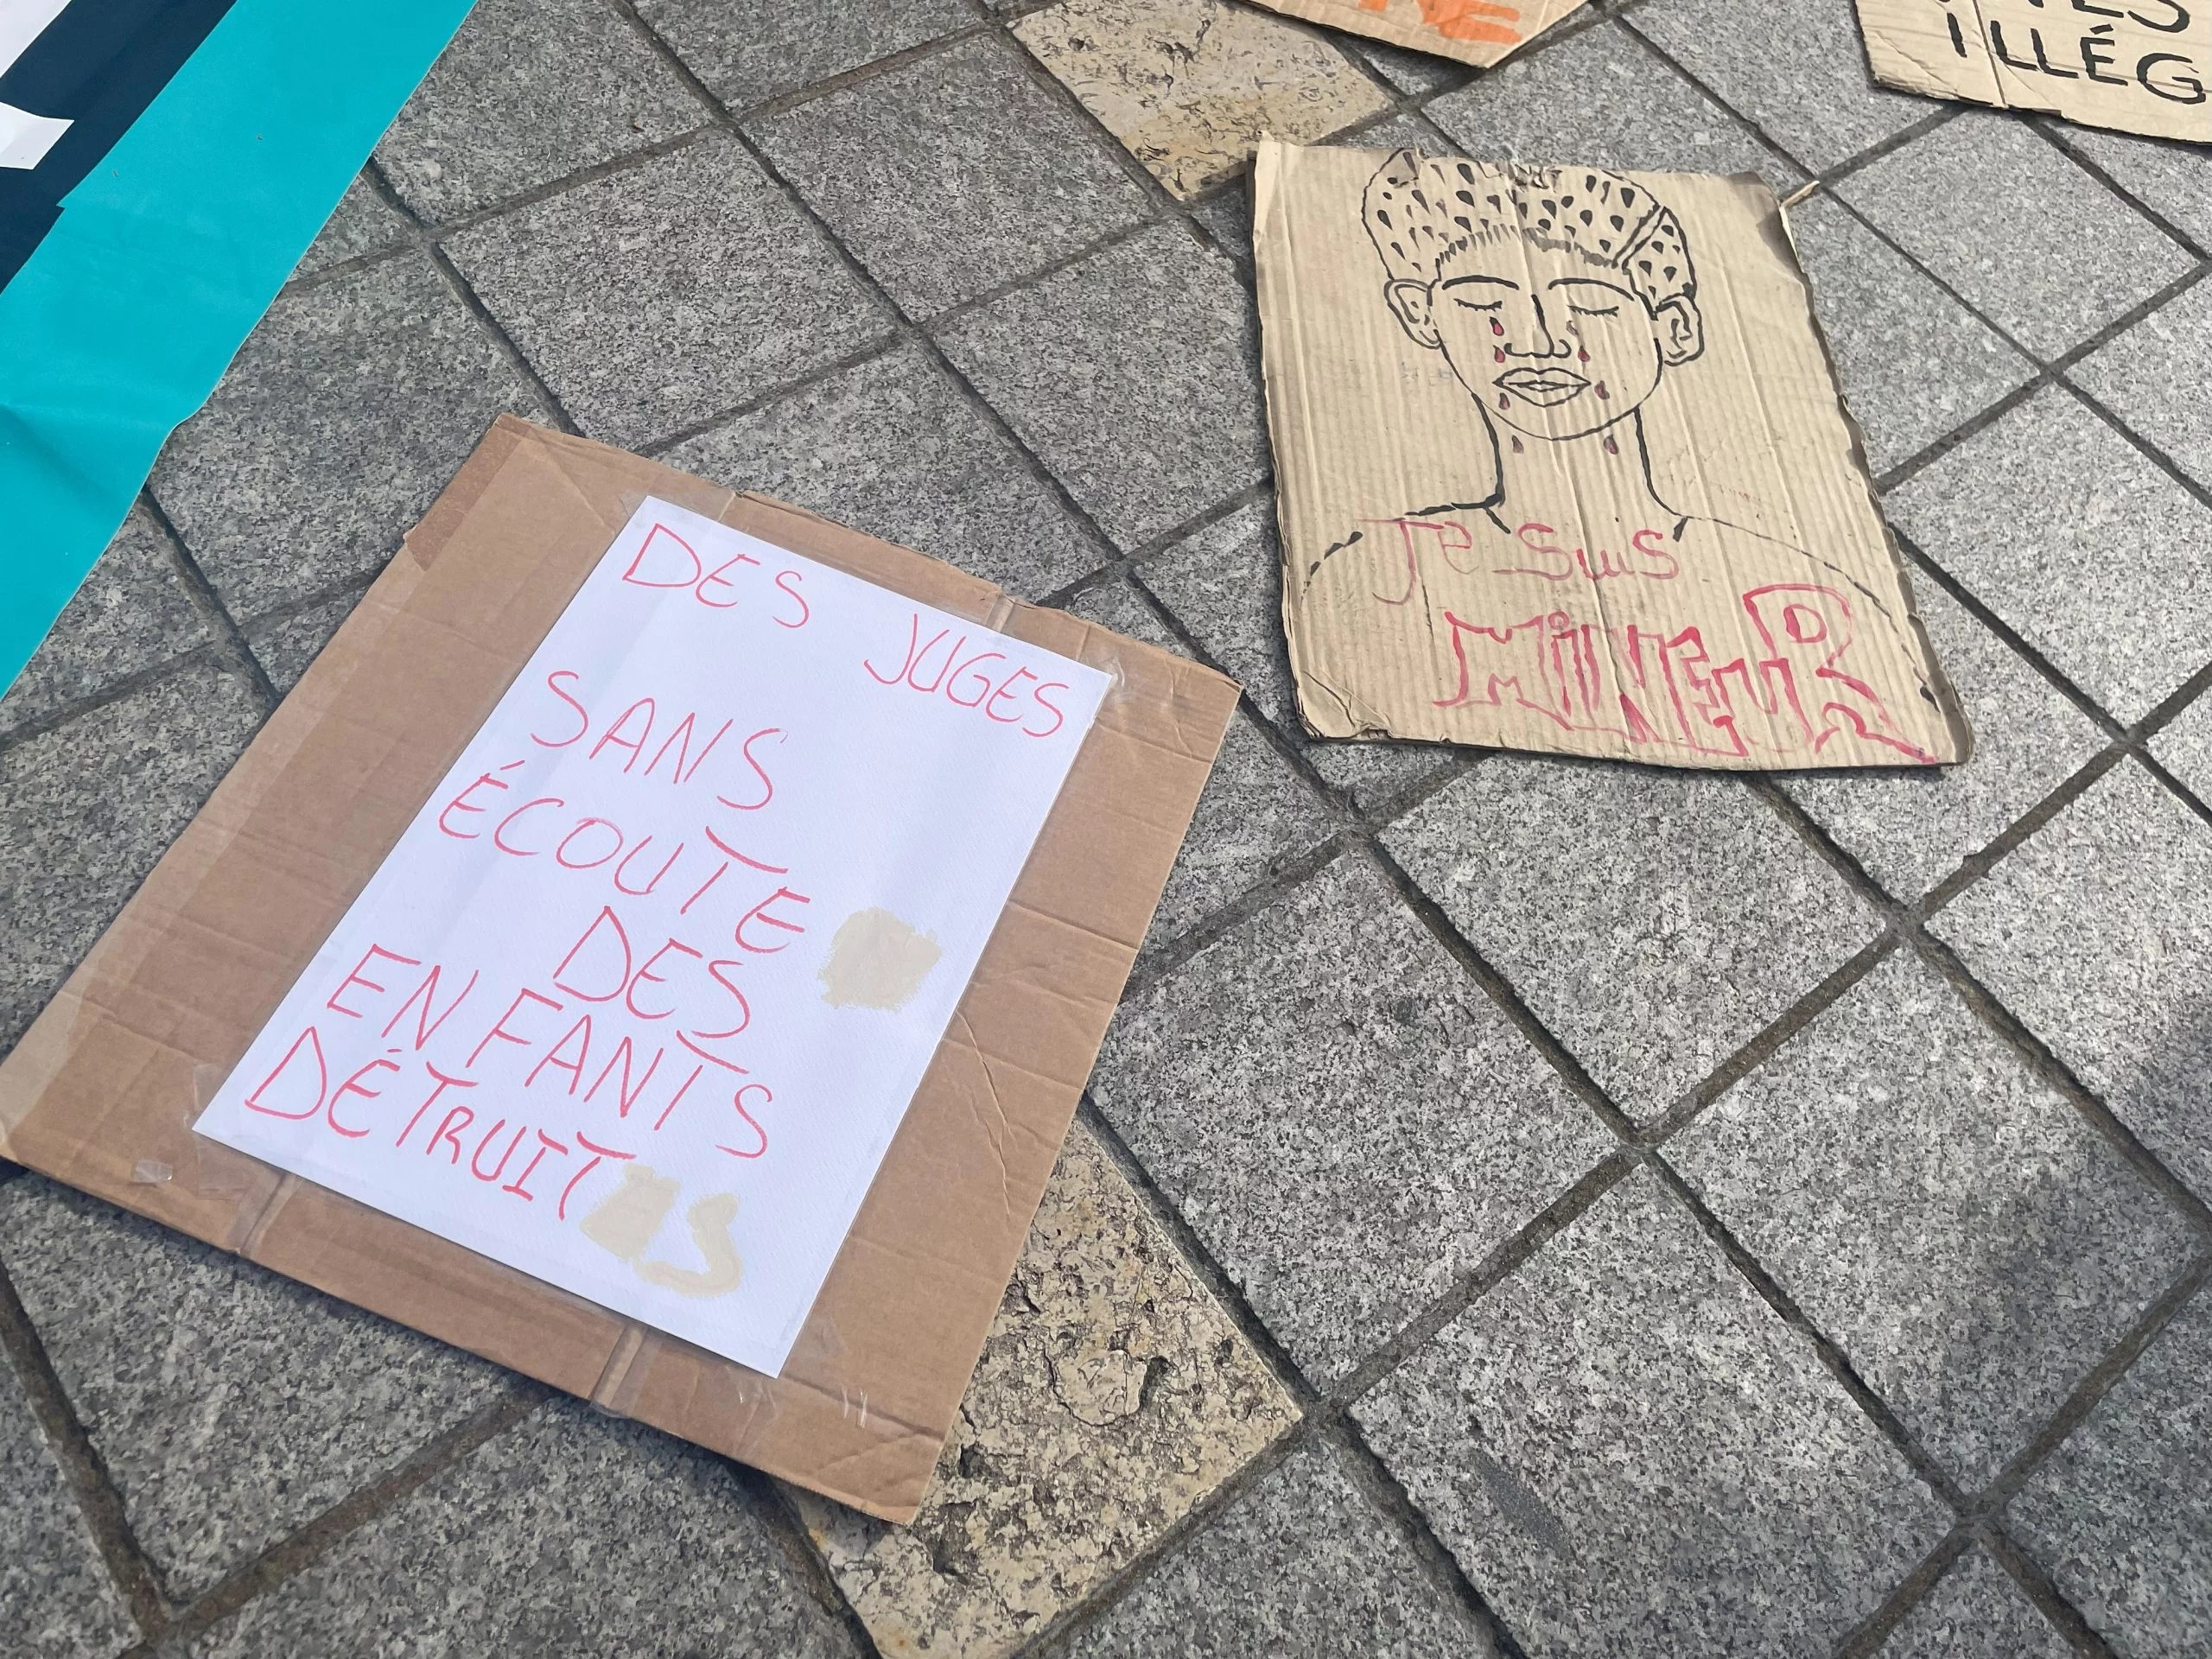 DES
JUGES
SANS
ÉCOUTE
DES
ENFANTS
DÉTRUITS
Je suis
MINEUR
ILLÉG